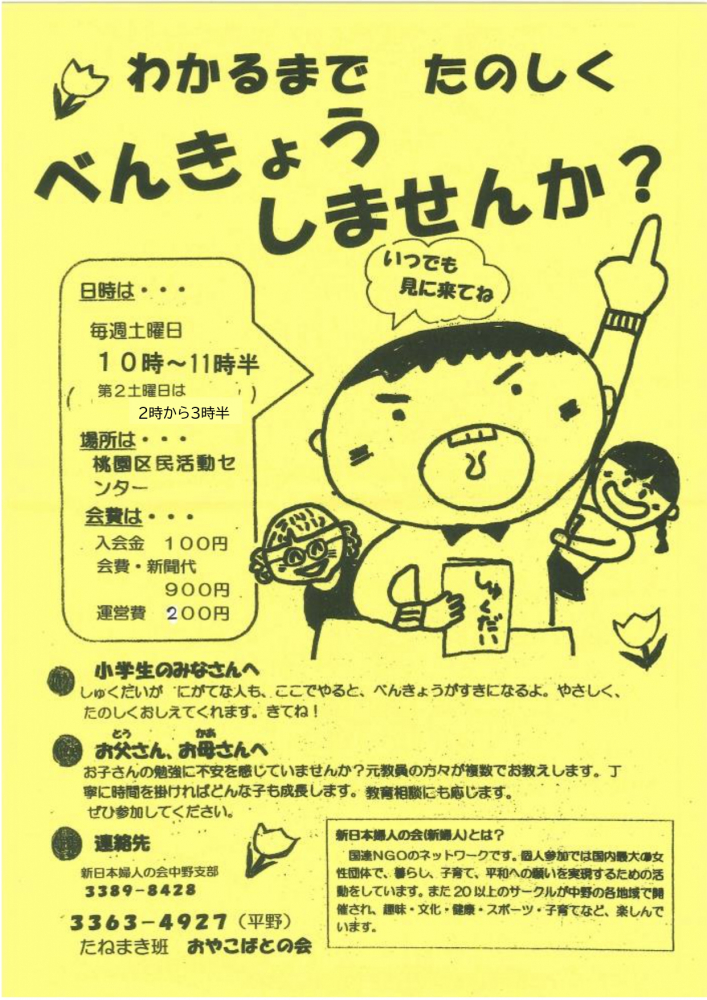 わかるまで　たのしく
べんきょう
しませんか?
いつでも
見に来てね
日時は・・・
毎週土曜日
１０時～11時半
(　第２土曜日は　)
2時から3時半
場所は・・・
桃園区民活動セ
ンター
会費は・・・
入会金　１００円
会費・新聞代
９００円
運営費　２００円
しゅくだい
小学生のみなさんへ
しゅくだいが　にがてな人も、ここでやると、べんきょうがすきになるよ。やさしく、
たのしくおしえてくれます。きてね！
とう　かあ
お父さん、お母さんへ
お子さんの勉強に不安を感じていませんか？元教員の方々が複数でお教えします。丁
寧に時間を掛ければどんな子も成長します。教育相談にも応じます。
ぜひ参加してください。
連絡先
新日本婦人の会中野支部
３３８９－８４２８
３３６３－４９２７（平野）
たねまき班　おやこばとの会
新日本婦人の会(新婦人)とは？
国連ＮＧＯのネットワークです。個人参加では国内最大の女
性団体で、暮らし、子育て、平和への願いを実現するための活
動をしています。また 20 以上のサークルが中野の各地域で開
催され、趣味・文化・健康・スポーツ・子育てなど、楽しんで
います。